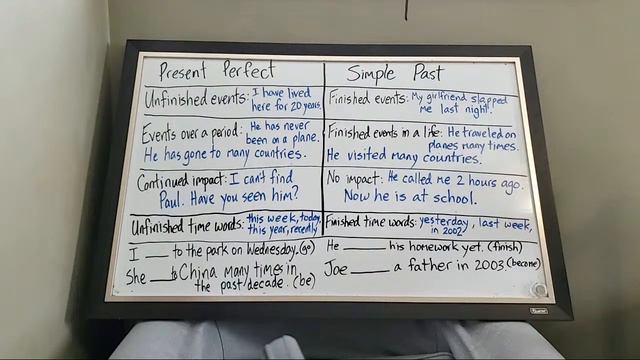 Present Perfect
Unfinished events: I have lived
here for 20 years.
Events over a period: He has never
been on a plane.
He has gone to many countries.
Continued impact: I can't find
Paul. Have you seen him?
Unfinished time words: this week, today,
this year, recently
I ___ to the park on Wednesday. (go)
She ___ to China many times in
the past decade. (be)
Simple Past
Finished events: My girlfriend slapped
me last night.
Finished events in a life: He traveled on
planes many times.
He visited many countries.
No impact: He called me 2 hours ago.
Now he is at school.
Finished time words: yesterday, last week,
in 2002
He ___ his homework yet. (finish)
Joe ___ a father in 2003 (become)